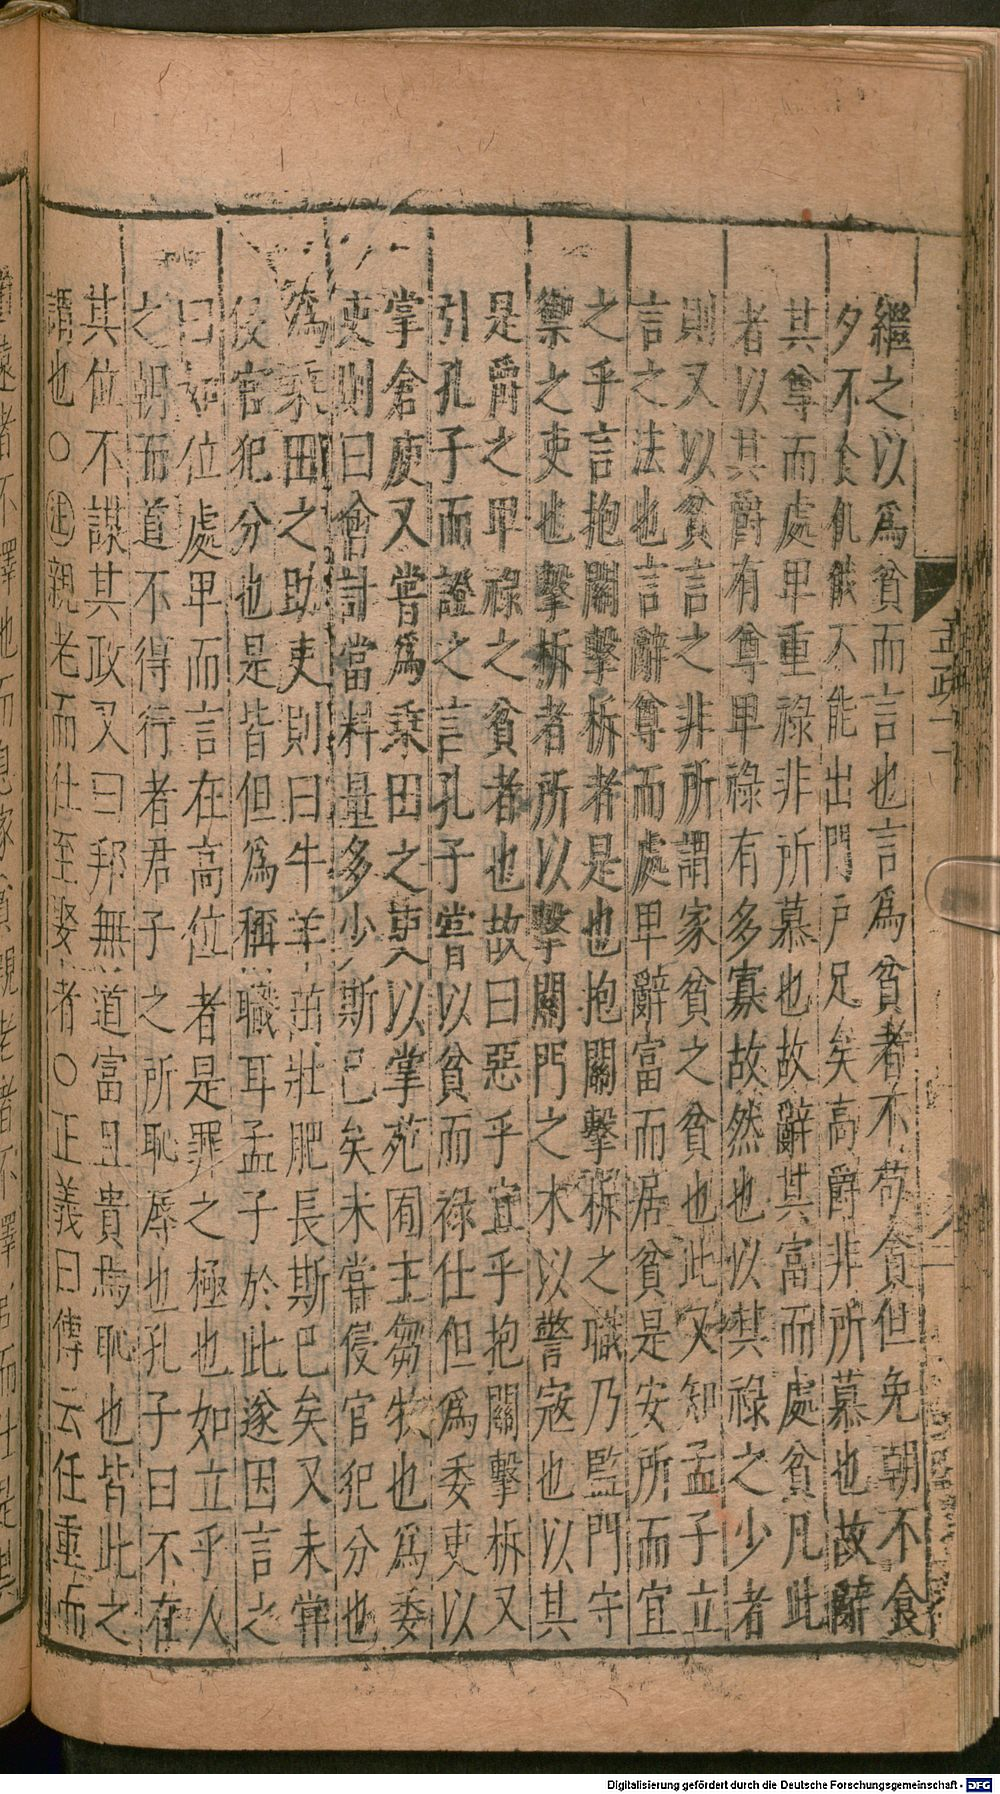 繼之以爲貧而言也言爲貧者不苟貪但免朝不食
夕不食飢餓不能出門戸足矣高爵非所慕也故辭
其尊而處甲重祿非所慕也故辭其富而處貧凡此
者以其爵有尊甲祿有多寡故然也以其祿之少者
則又以貧言之非所謂家貧之貧也此又知孟子立
言之法也言辭尊而處甲辭富而居貧是安所而宜
之乎言抱關擊柝者是也抱關擊柝之職乃監門守
禦之吏也擊柝者所以擊關門之木以警寇也以其
是爵之甲祿之貧者也故曰惡乎宜乎抱關擊柝又
引孔子而證之言孔子嘗以貧而祿仕但爲委吏以
掌倉庾又嘗爲乗田之吏以掌苑囿主芻牧也爲委
吏則曰會計當料量多少斯已矣未嘗侵官犯分也
爲乗田之助吏則曰牛羊茁壯肥長斯巳矣又未嘗
侵官犯分也是皆但爲稱職耳孟子於此遂因言之
曰 位處甲而言在高位者是罪之極也如立乎人
之朝而道不得行者君子之所恥辱也孔子曰不在
其位不謀其政又曰邦無道富且貴焉恥也皆此之
謂也○注親老而仕至娶者○正義曰傳云任重而
Digitalisierung gefördert durch die Deutsche Forschungsgemeinschaft - DFG